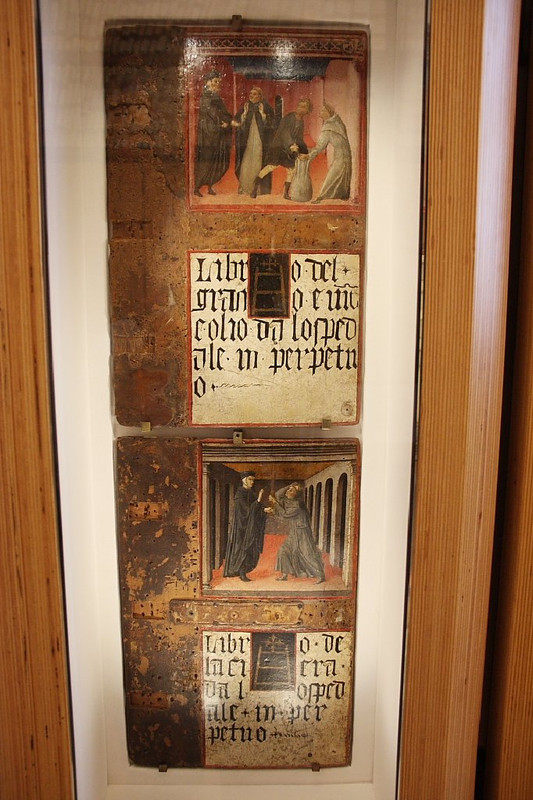 Libr o del ·
gran o e
e olio da losped
ale · in perpetu
o ·
Libr o · de
la ci era ·
da l osped
ale · in · per
petuo ·